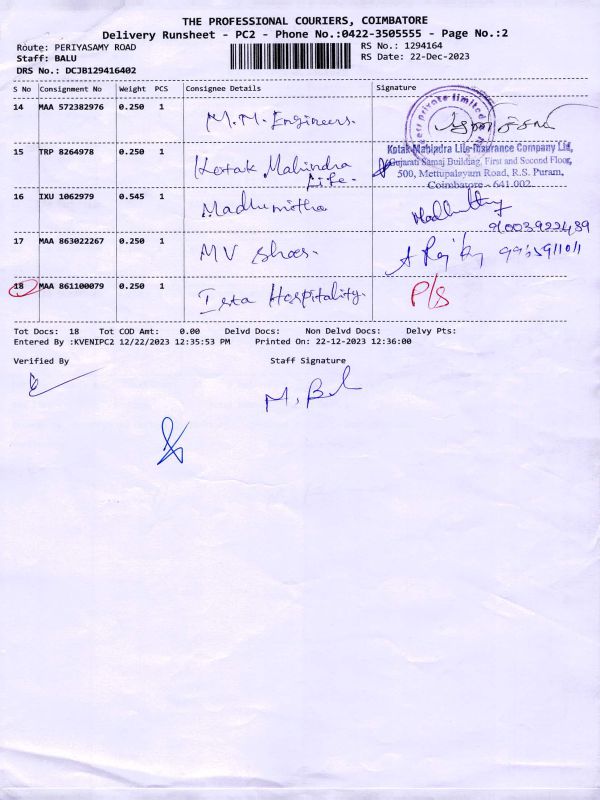 THE PROFESSIONAL COURIERS, COIMBATORE
Delivery Runsheet - PC2 - Phone No.:0422-3505555 - Page No.:2
Route: PERIYASAMY ROAD RS No.: 1294164
Staff: BALU RS Date: 22-Dec-2023
DRS No.: DCJB129416402
S No Consignment No Weight PCS Consignee Details Signature
14 MAA 572382976 0.250 1 M.M. Engineers.
15 TRP 8264978 0.250 1 Kotak Mahindra
Life.
Kotak Mahindra Life Insurance Company Ltd,
Gujarati Samaj Building, First and Second Floor,
500, Mettupalayam Road, R.S. Puram,
Coimbatore - 641 002
16 IXU 1062979 0.545 1 Madhumitha
9003922489
17 MAA 863022267 0.250 1 MV Shoes.
18 MAA 861100079 0.250 1 Hospitality. P/S
Tot Docs: 18 Tot COD Amt: 0.00 Delvd Docs: Non Delvd Docs: Delvy Pts:
Entered By :KVENIPC2 12/22/2023 12:35:53 PM Printed On: 22-12-2023 12:36:00
Verified By Staff Signature